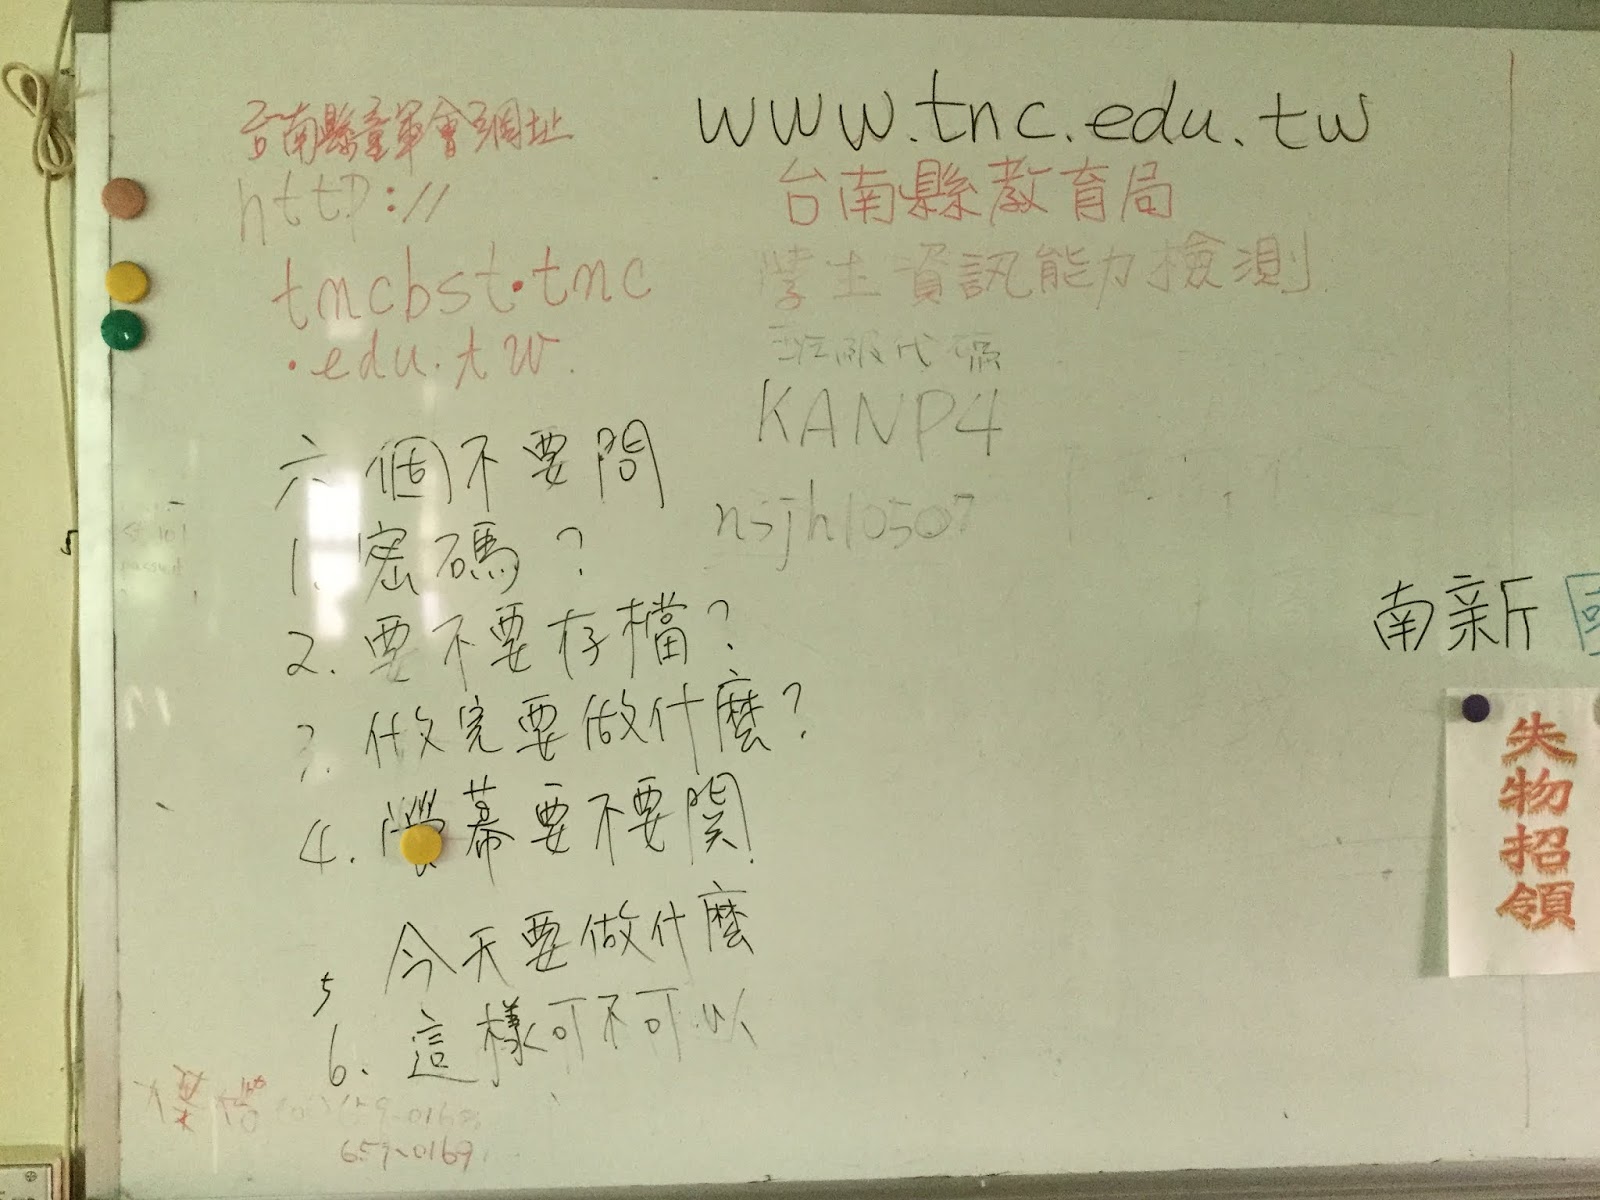 台南縣童軍會網址
http://
tncbst.tnc
.edu.tw.
www.tnc.edu.tw
台南縣教育局
學生資訊能力檢測
班級代碼
KANP4
nsjh10507
六個不要問
1. 密碼?
2. 要不要存檔?
3. 做完要做什麼?
4. 螢幕要不要関
5 今天要做什麼
6. 這樣可不可以
659-0169
南新國
失物招領